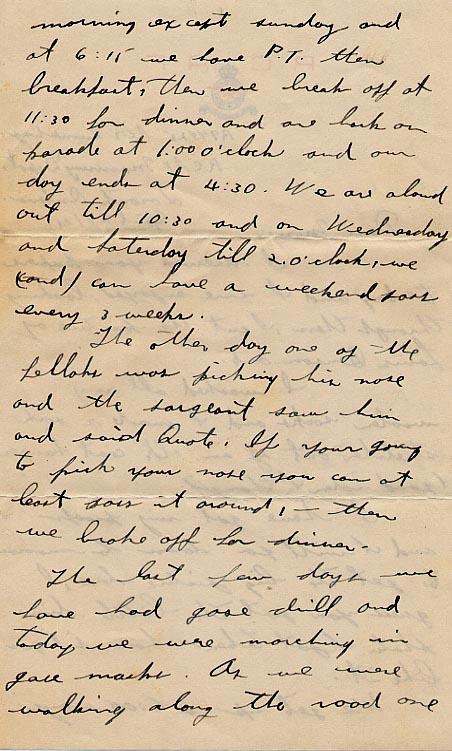 morning except sunday and
at 6:15 we have P.T. then
breakfast, then we break off at
11:30 for dinner and are back on
parade at 1:00 O'clock and our
day ends at 4:30. We are aloud
out till 10:30 and on Wednesday
and Saterday till 2.O'clock, we
(and) can have a weekend pass
every 3 weeks.
The other day one of the
fellahs was picking his nose
and the sargeant saw him
and said Quote, If your going
to pick your nose you can at
least pass it around, — then
we broke off for dinner-
The last few days we
have had gase drill and
today we were marching in
gase masks. As we were
walking along the road one